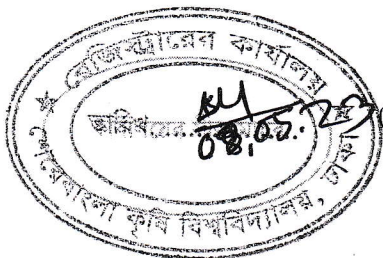 রেজিস্ট্রারের কার্যালয়
তারিখ
08.05.23
শেরেবাংলা কৃষি বিশ্ববিদ্যালয়, ঢাকা